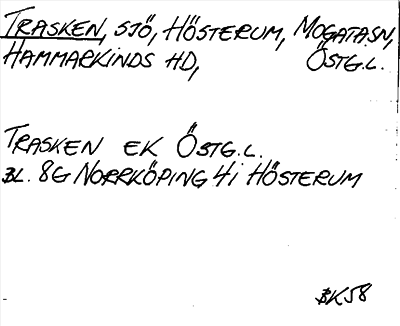 TRASKEN, SJÖ, HÖSTERUM, MOGATA SN,
HAMMARKINDS HD, ÖSTG.L.
TRASKEN EK ÖSTG.L.
BL. 8G NORRKÖPING 4i HÖSTERUM
BK58